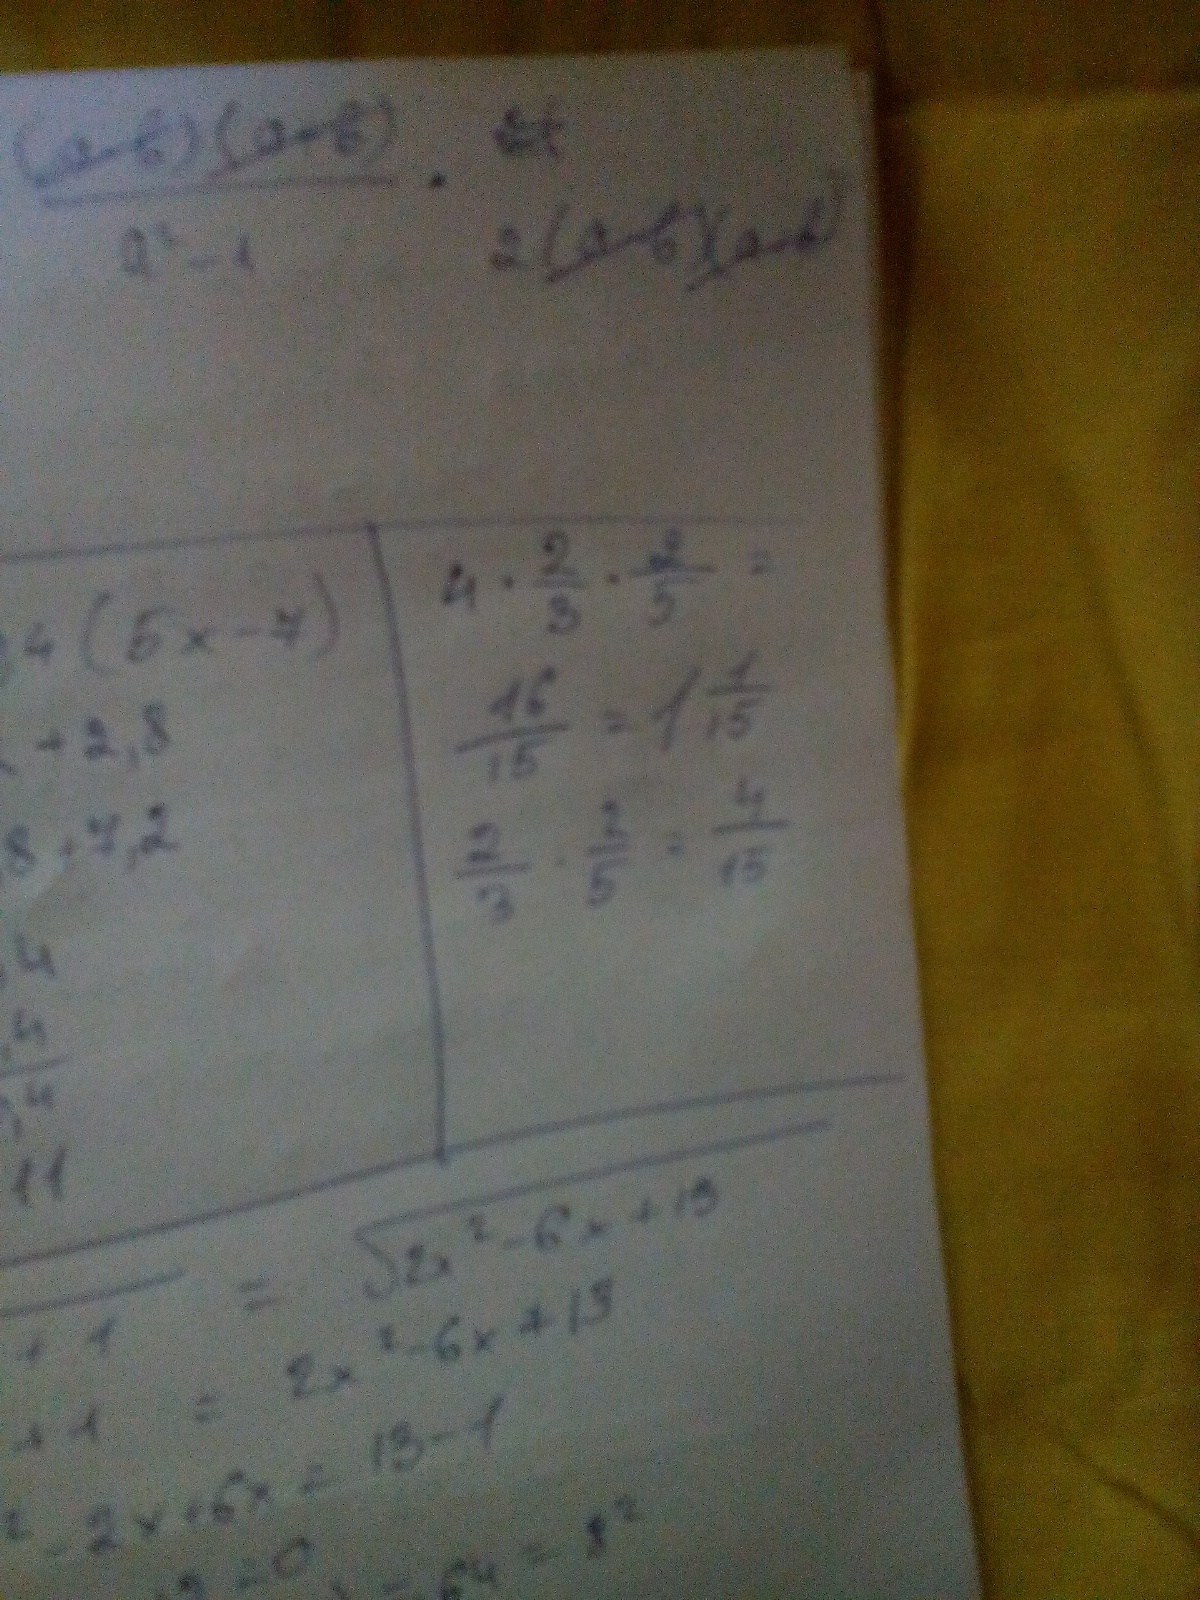 (a-b)(a+b) .
a²-1 2(a-b)(a-b)
4(5x-7)
+2,8
8+7,2
,4
,4
,4
11
4 · 2/3 · 2/5 =
16/15 = 1 1/15
2/3 · 2/5 = 4/15
+ 1 = √2x²-6x+13
+ 1 = 2x²-6x+13
² - 2x+6x = 13-1
= 0 = 64 = 8²